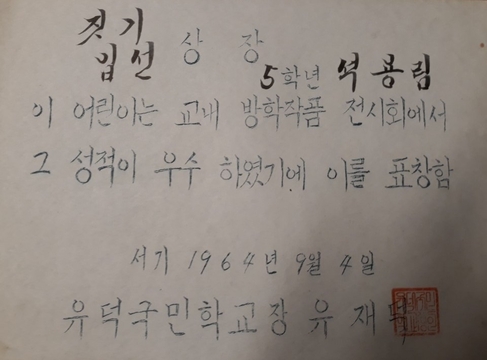 짓기
입선 상장
5학년 석용림
이 어린이는 교내 방학작품 전시회에서
그 성적이 우수 하였기에 이를 표창함
서기 1964년 9월 4일
유덕국민학교장 유재덕